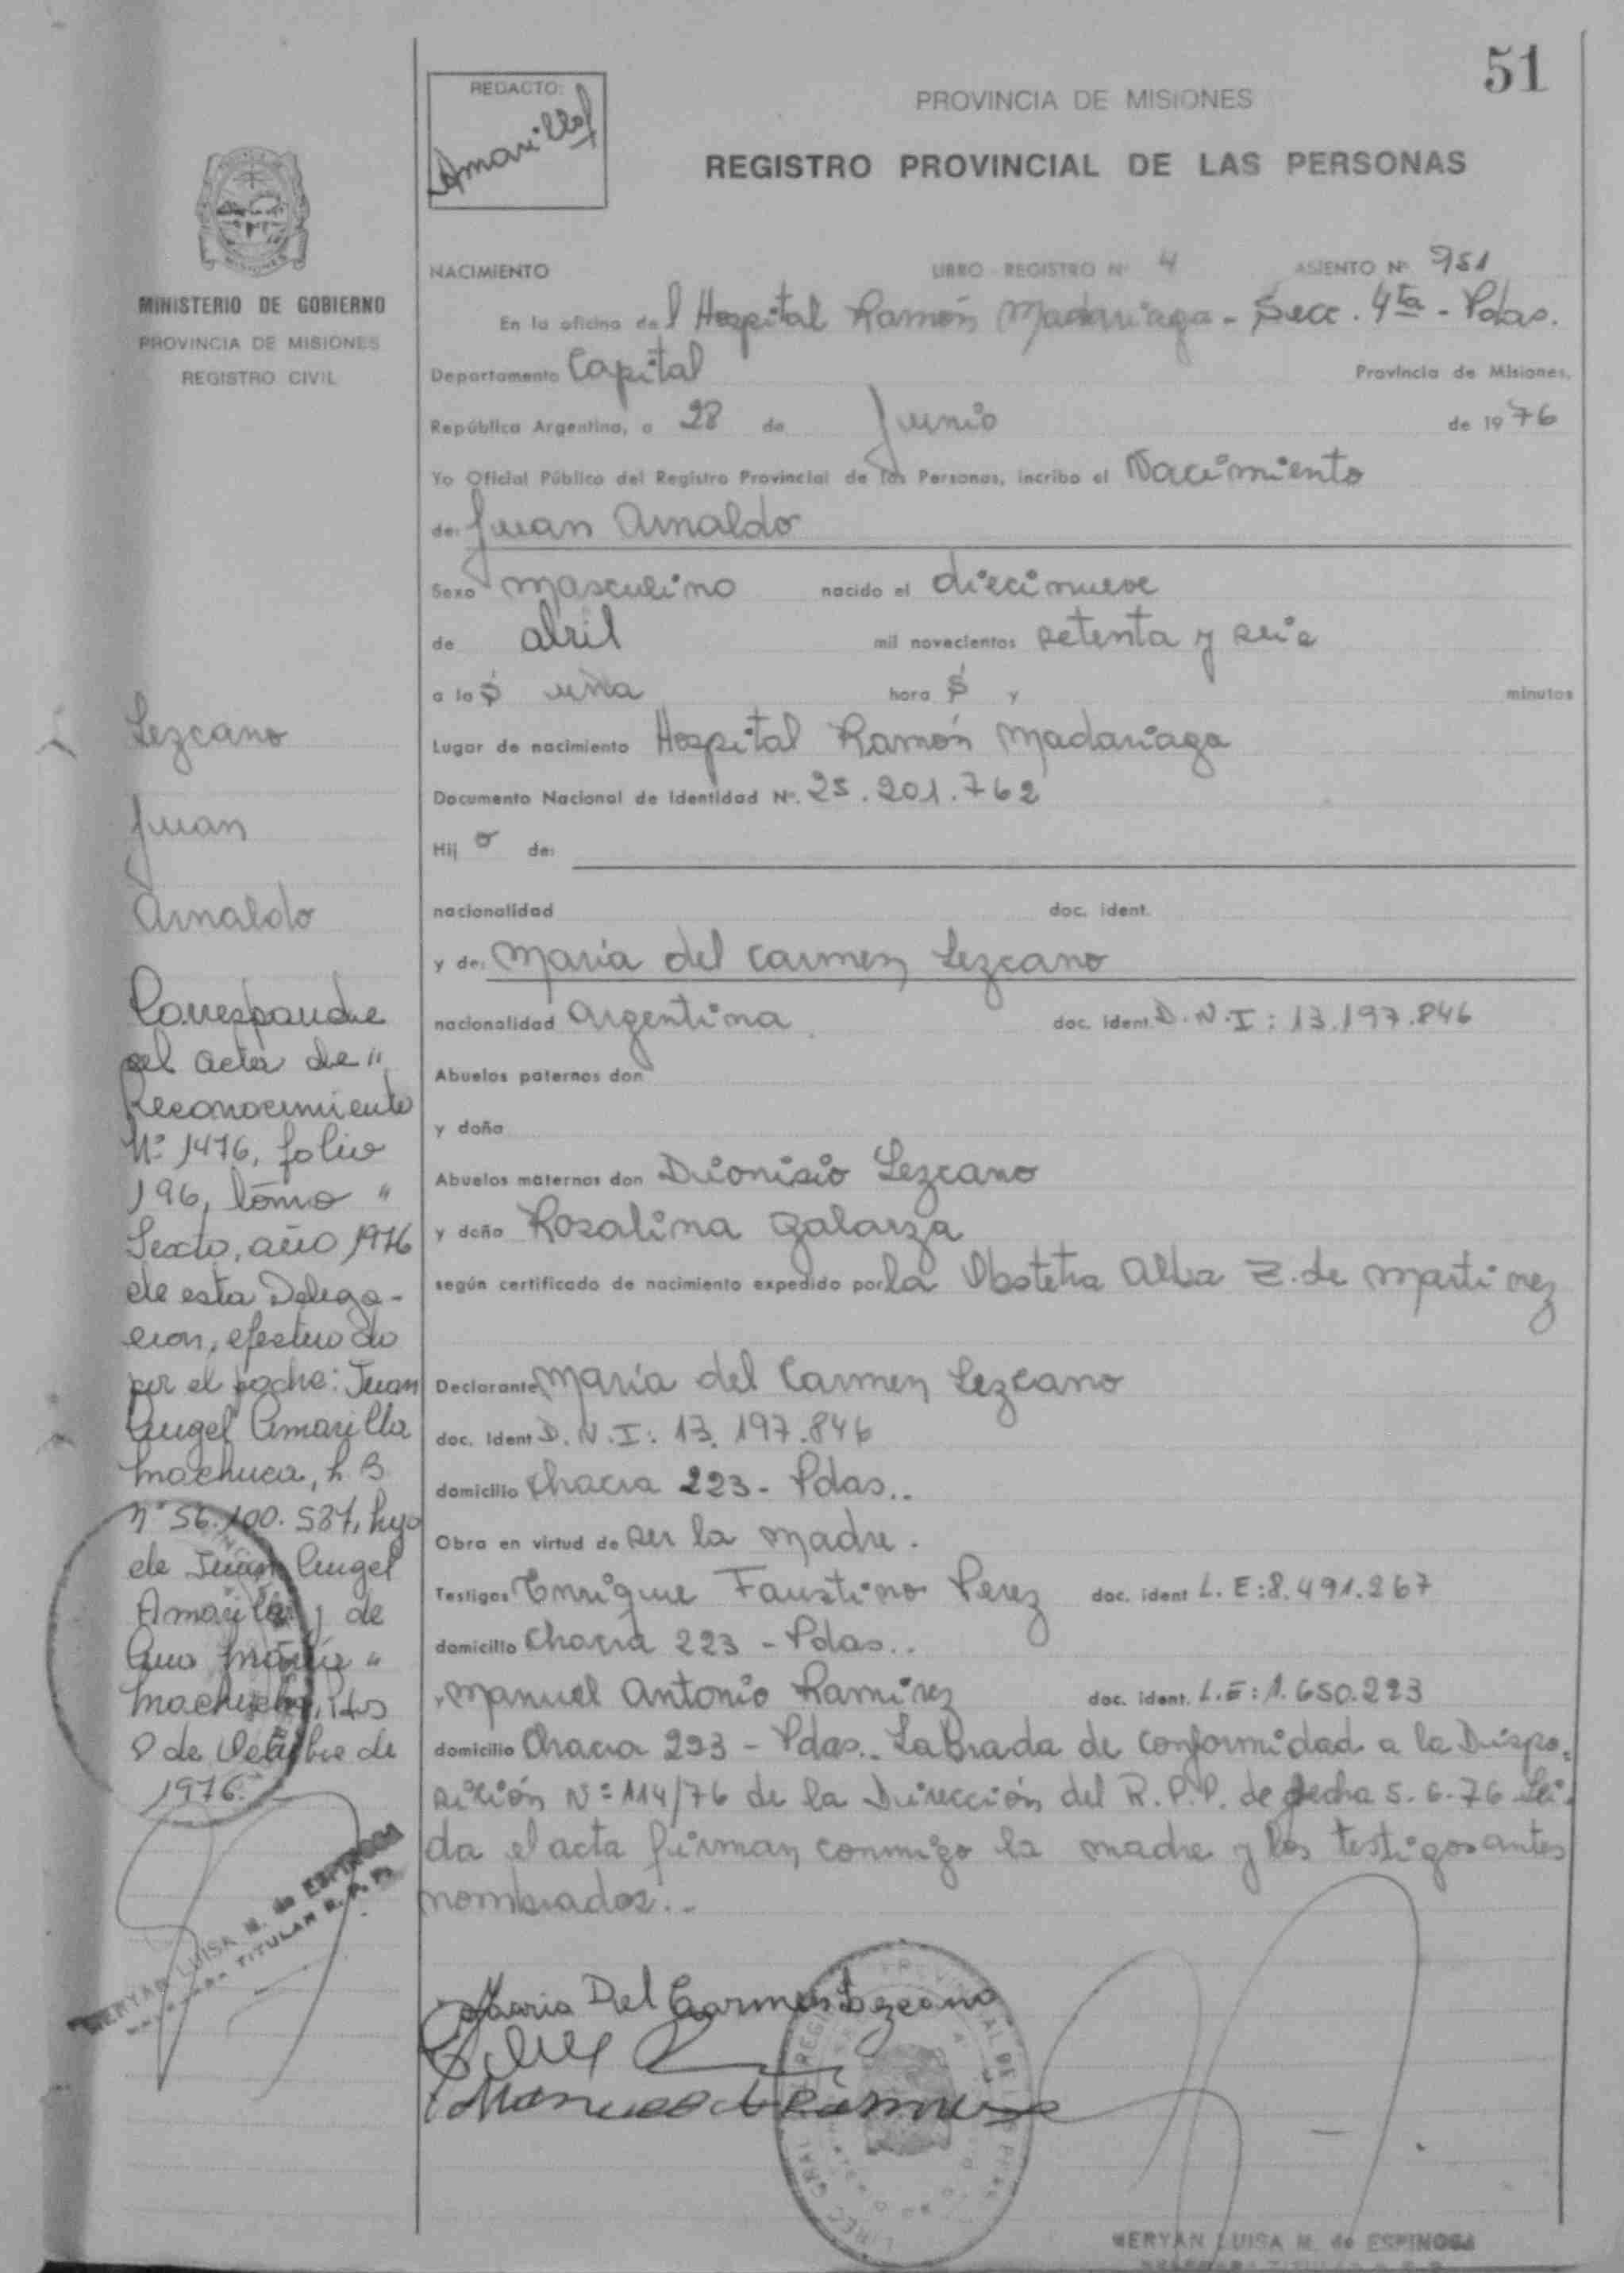 51
REDACTO:
Amarilla
PROVINCIA DE MISIONES
REGISTRO PROVINCIAL DE LAS PERSONAS
MISIONES
MINISTERIO DE GOBIERNO
PROVINCIA DE MISIONES
REGISTRO CIVIL
NACIMIENTO LIBRO - REGISTRO Nº 4 ASIENTO Nº 951
En la oficina del Hospital Ramón Madariaga - Secc. 4ta - Pdas.
Departamento Capital Provincia de Misiones,
República Argentina, a 28 de Junio de 1976
Yo Oficial Público del Registro Provincial de las Personas, incribo el Nacimiento
de: Juan Arnaldo
Sexo masculino nacido el diecinueve
de abril mil novecientos setenta y seis
a la una hora y minutos
Lugar de nacimiento Hospital Ramón Madariaga
Documento Nacional de Identidad Nº. 25.201.762
Hij o de:
nacionalidad doc. ident.
y de: María del Carmen Lezcano
nacionalidad Argentina doc. ident. D.N.I: 13.197.846
Abuelos paternos don
y doña
Abuelos maternos don Dionisio Lezcano
y doña Rosalina Galarza
según certificado de nacimiento expedido por la Obstetra Alba Z. de Martinez
Declarante María del Carmen Lezcano
doc. Ident D.N.I: 13.197.846
domicilio Chacra 223 - Pdas..
Obra en virtud de ser la madre.
Testigos Enrique Faustino Perez doc. ident L.E: 8.491.267
domicilio Chacra 223 - Pdas..
y Manuel Antonio Ramirez doc. ident. L.E: 1.650.223
domicilio Chacra 223 - Pdas.. Labrada de conformidad a la Dispo-
sición Nº 114/76 de la Dirección del R.P.P. de fecha 5.6.76 Lei-
da el acta firman conmigo la madre y los testigos antes
nombrados..
Lezcano
Juan
Arnaldo
Corresponde
el acta de "
Reconocimiento
Nº 1476, folio
196, tomo "
Sexto, año 1976
de esta Delega-
cion, efectuado
por el padre: Juan
Angel Amarilla
Machuca, L. B
nº 56.100.587, hijo
de Juan Angel
Amarilla y de
Ana María "
Machuca, Pdas
8 de Octubre de
1976.
MERYAN LUISA M. de ESPINOSA
TITULAR R. P. P.
Maria Del Carmen Lezcano
Manuel A Ramirez
MERYAN LUISA M. de ESPINOSA